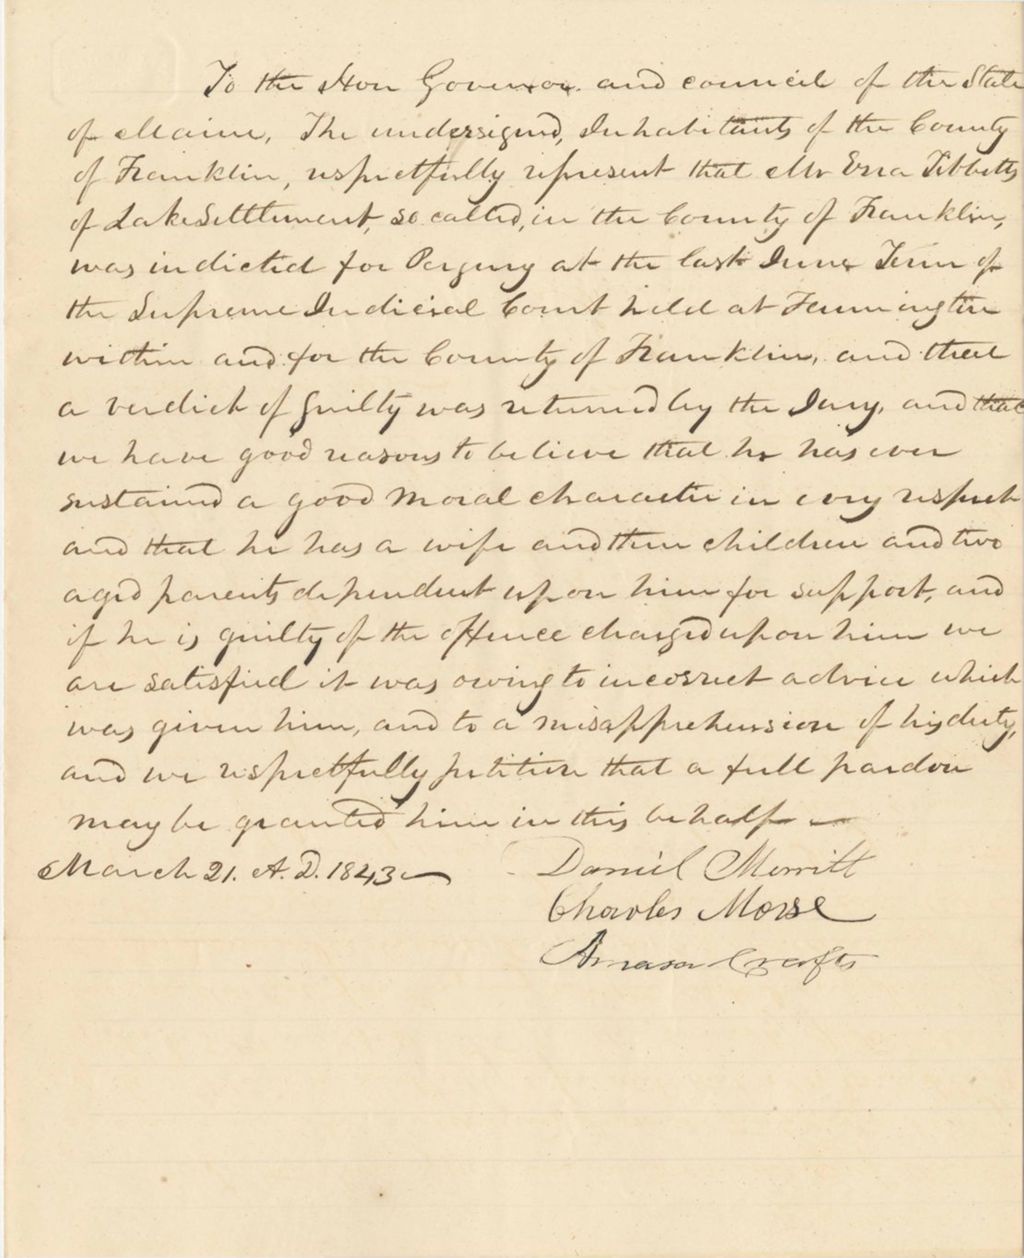 To the Hon Governor. and council of the State
of Maine, The undersigned, Inhabitants of the County
of Franklin, respectfully represent that Mr Ezra Tibbetts
of Lake Settlement, so called, in the County of Franklin,
was indicted for Perjury at the last June Term of
the Supreme Judicial Court held at Farmington
within and for the County of Franklin, and that
a verdict of guilty was returned by the Jury, and that
we have good reasons to believe that he has ever
sustained a good moral character in every respect
and that he has a wife and three children and two
aged parents dependent upon him for support, and
if he is guilty of the offence charged upon him we
are satisfied it was owing to incorrect advice which
was given him, and to a misapprehension of his duty,
and we respectfully petition that a full pardon
may be granted him in this behalf —
March 21. A.D. 1843 —
Daniel Merritt
Charles Morse
Amasa Crafts